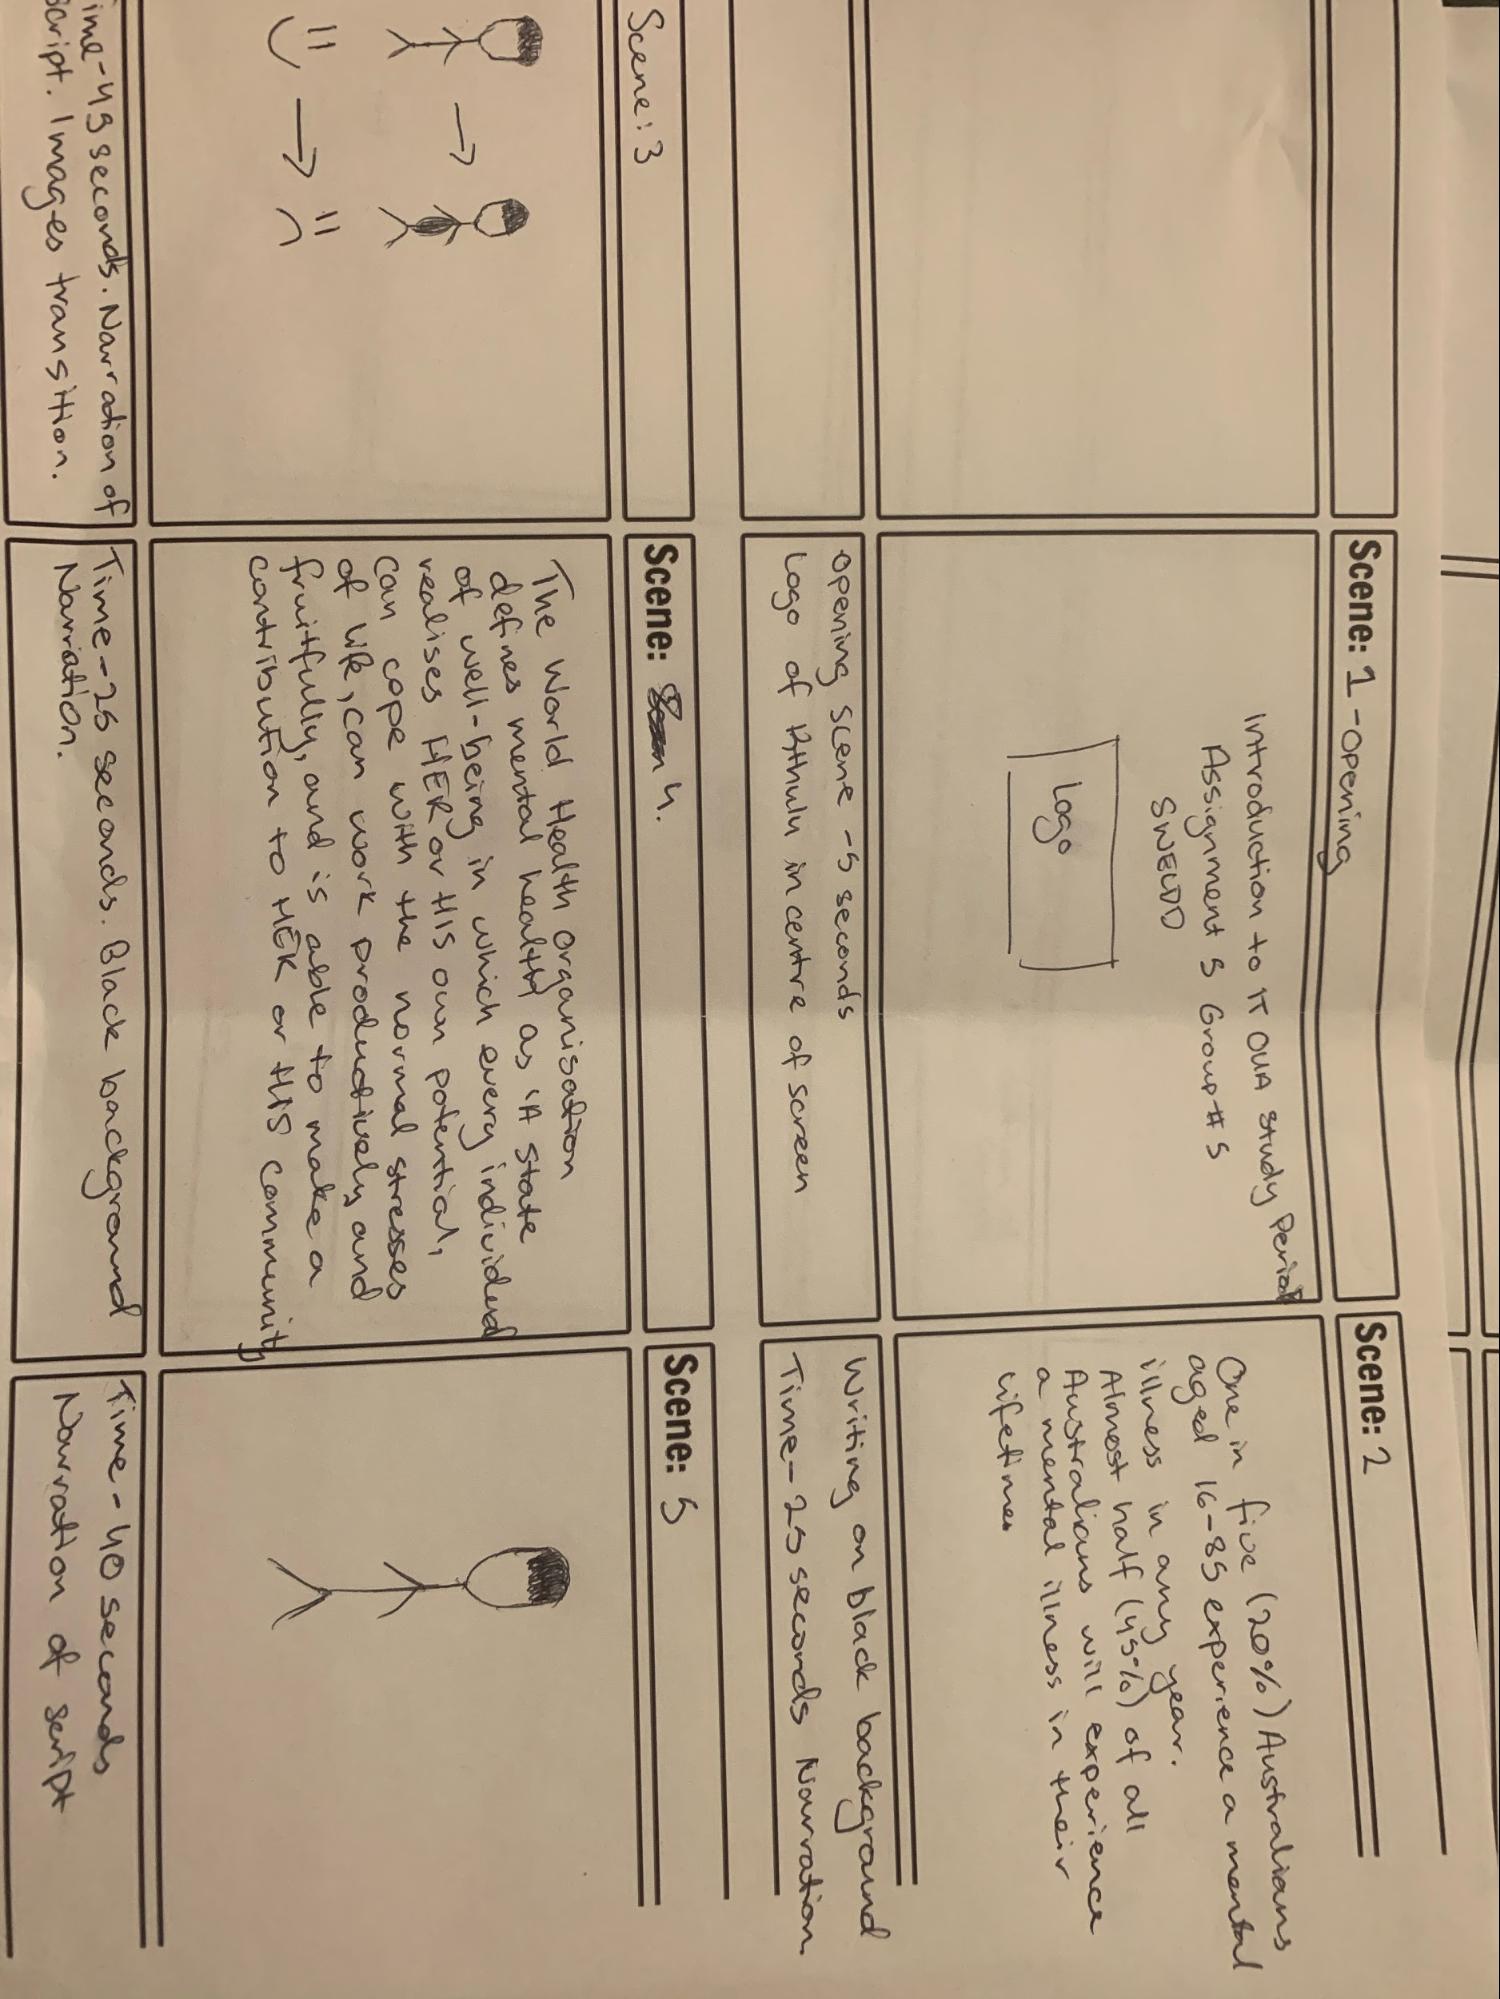 Scene: 1 - Opening
Introduction to IT OUA Study Period
Assignment 3 Group # 5
SWEUDD
Logo
Opening Scene - 5 seconds
Logo of in centre of screen
Scene: 2
One in five (20%) Australians
aged 16-85 experience a mental
illness in any year.
Almost half (45%) of all
Australians will experience
a mental illness in their
lifetimes
Writing on black background
Time - 25 seconds Narration.
Scene: 3
ime - 45 seconds. Narration of
script. Images transition.
Scene: 4.
The World Health Organisation
defines mental health as 'A state
of well-being in which every individual
realises HER or HIS own potential,
can cope with the normal stresses
of life, can work productively and
fruitfully, and is able to make a
contribution to HER or HIS community
Time - 25 seconds. Black background
Narration.
Scene: 5
Time - 40 seconds
Narration of script